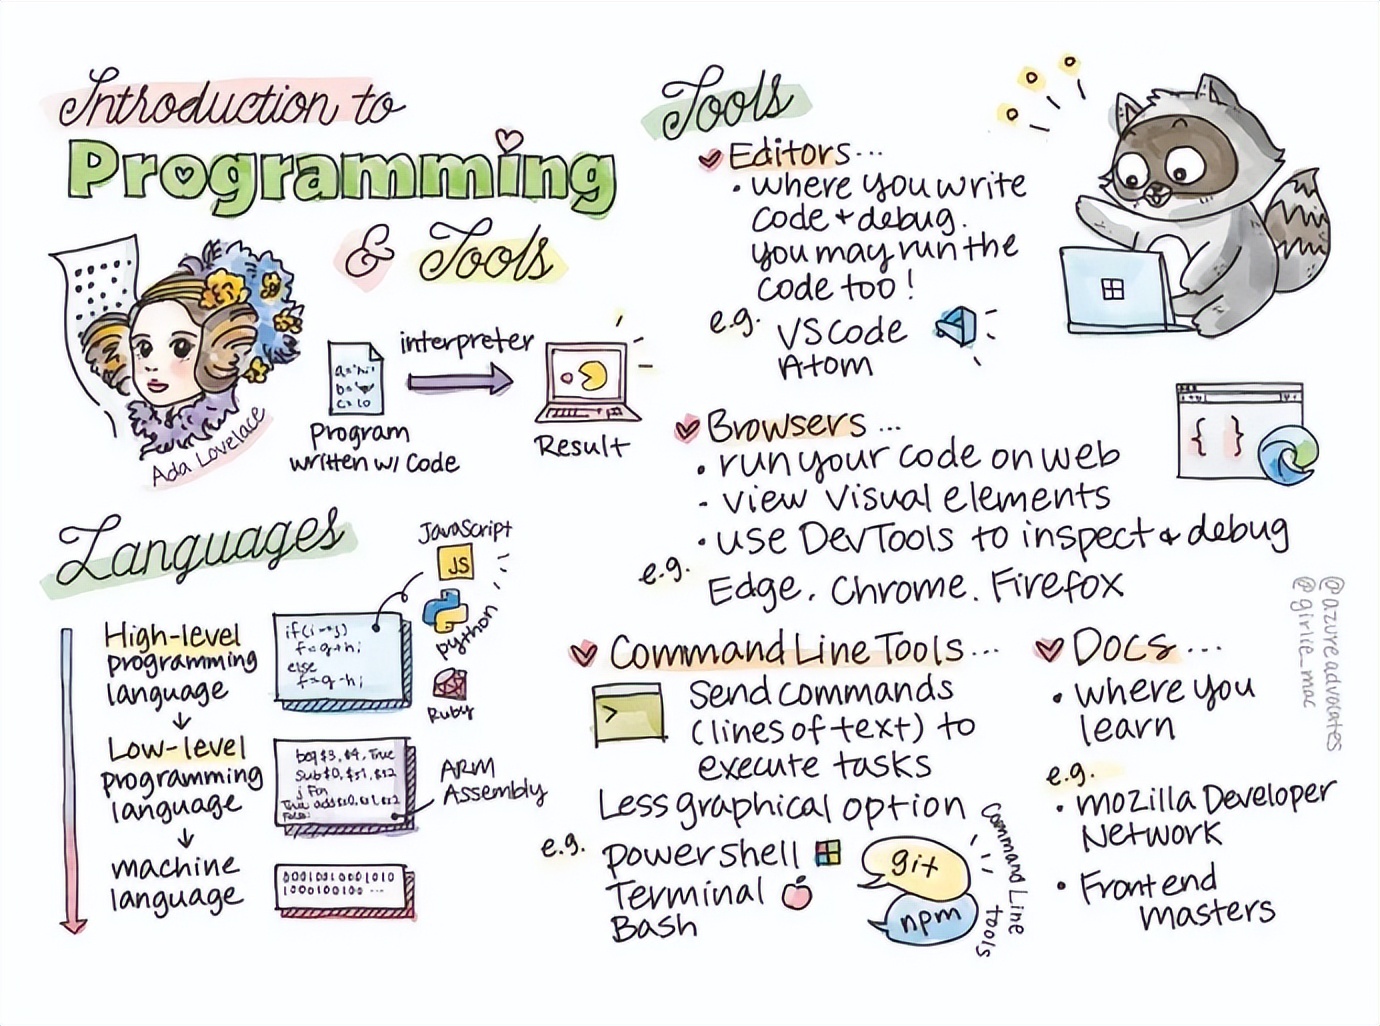 Introduction to
Programming
& Tools
Ada Lovelace
a='hi'
c=10
Program
written w/ Code
interpreter
Result
Languages
High-level
programming
language
Low-level
programming
language
machine
language
if(i==j)
f=g+h;
else
f=g-h;
JavaScript
JS
python
Ruby
beq $3, $4, True
Sub $0, $s1, $s2
False:
ARM
Assembly
Tools
Editors...
• where you write
code + debug.
you may run the
code too!
e.g. VS code
Atom
Browsers ...
• run your code on web
- view visual elements
• use DevTools to inspect & debug
e.g. Edge, Chrome, Firefox
{ }
Command Line Tools...
>
Send commands
(lines of text) to
execute tasks
Less graphical option
e.g. powershell
Terminal
Bash
git
npm
Command Line tools
Docs...
• where you
learn
e.g.
• mozilla Developer
Network
• Frontend
masters
@azureadvocates
@girlie_mac